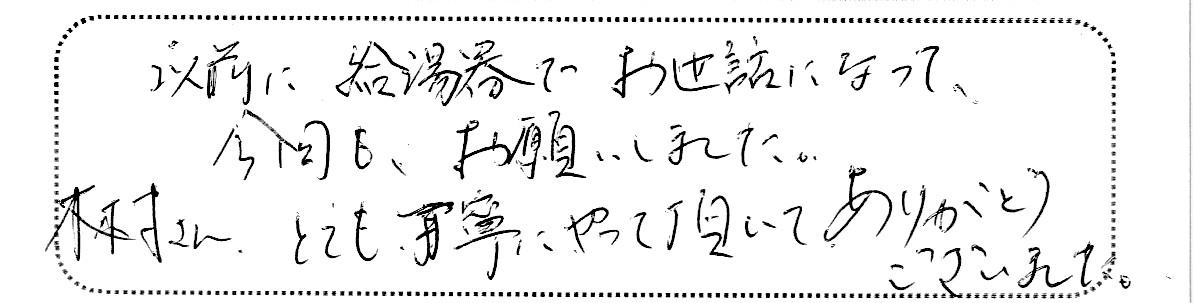 以前に給湯器でお世話になって、
今回も、お願いしました。
木村さん、とても丁寧にやって頂いてありがとう
ございました。